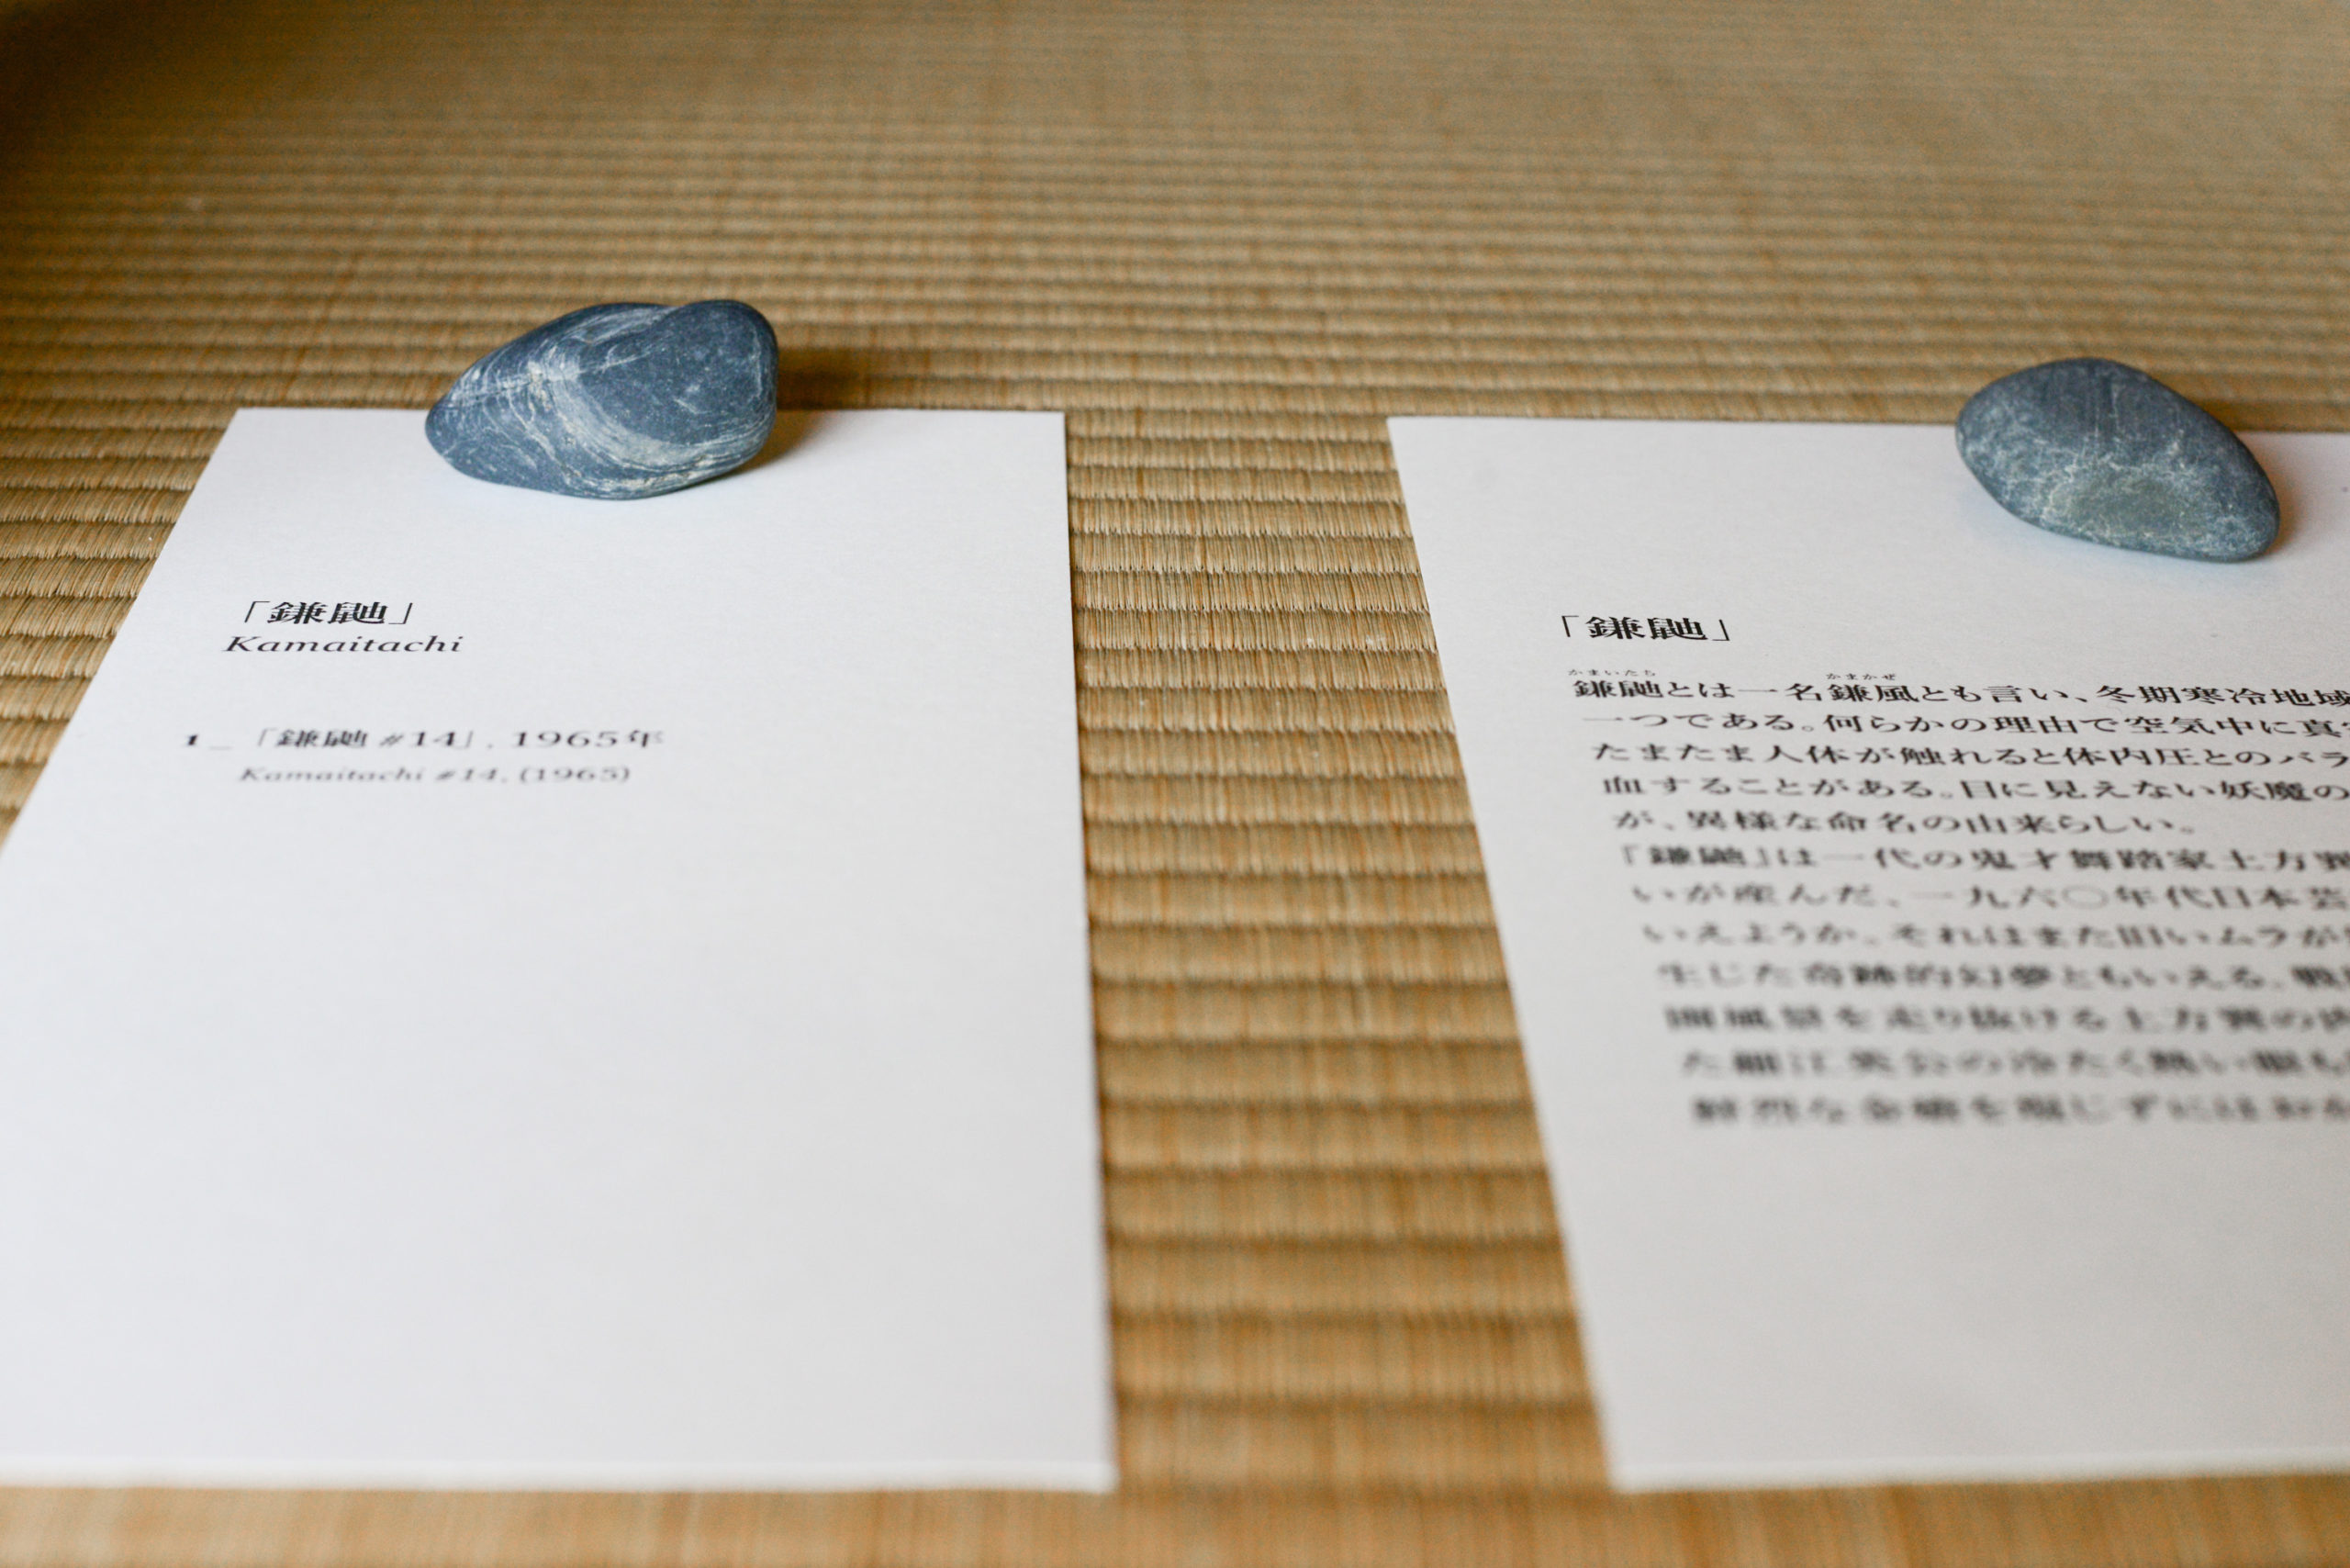 「鎌鼬」
Kamaitachi
1_ 「鎌鼬 #14」, 1965年
Kamaitachi #14, (1965)
「鎌鼬」
かまいたち かまかぜ
鎌鼬とは一名鎌風とも言い、冬期寒冷地域
一つである。何らかの理由で空気中に真
たまたま人体が触れると体内圧とのバラ
血することがある。目に見えない妖魔の
が、異様な命名の由来らしい。
「鎌鼬」は一代の鬼才舞踏家土方巽
いが産んだ、一九六〇年代日本芸
いえようか。それはまた旧いムラが
生じた奇跡的幻夢ともいえる。戦
風景を走り抜ける土方巽の
た細江英公の冷たく熱い眼も
烈な